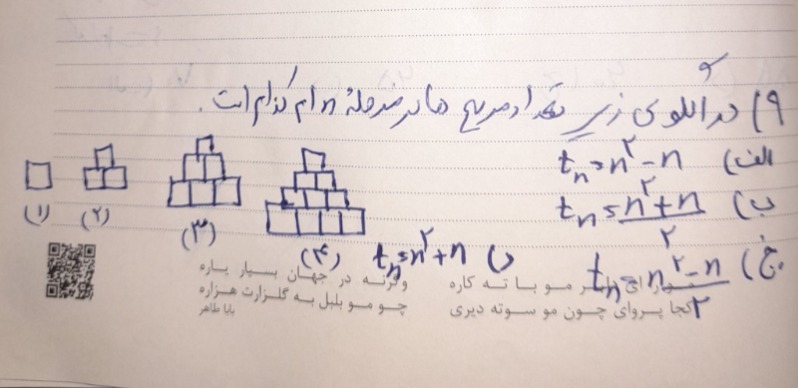 ۹) در الگوی زیر تعداد مربع ها در مرحلهٔ n ام کدام است.
الف) tₙ = n² - n
ب) tₙ = (n² + n)/۲
ج) tₙ = (n² - n)/۲
د) tₙ = n² + n
(۱) (۲) (۳) (۴)
مو با ته کاره وگرنه در جهان بسیار یاره
کجا پروای چون مو سوته دیری چو مو بلبل به گلزارت هزاره
بابا طاهر